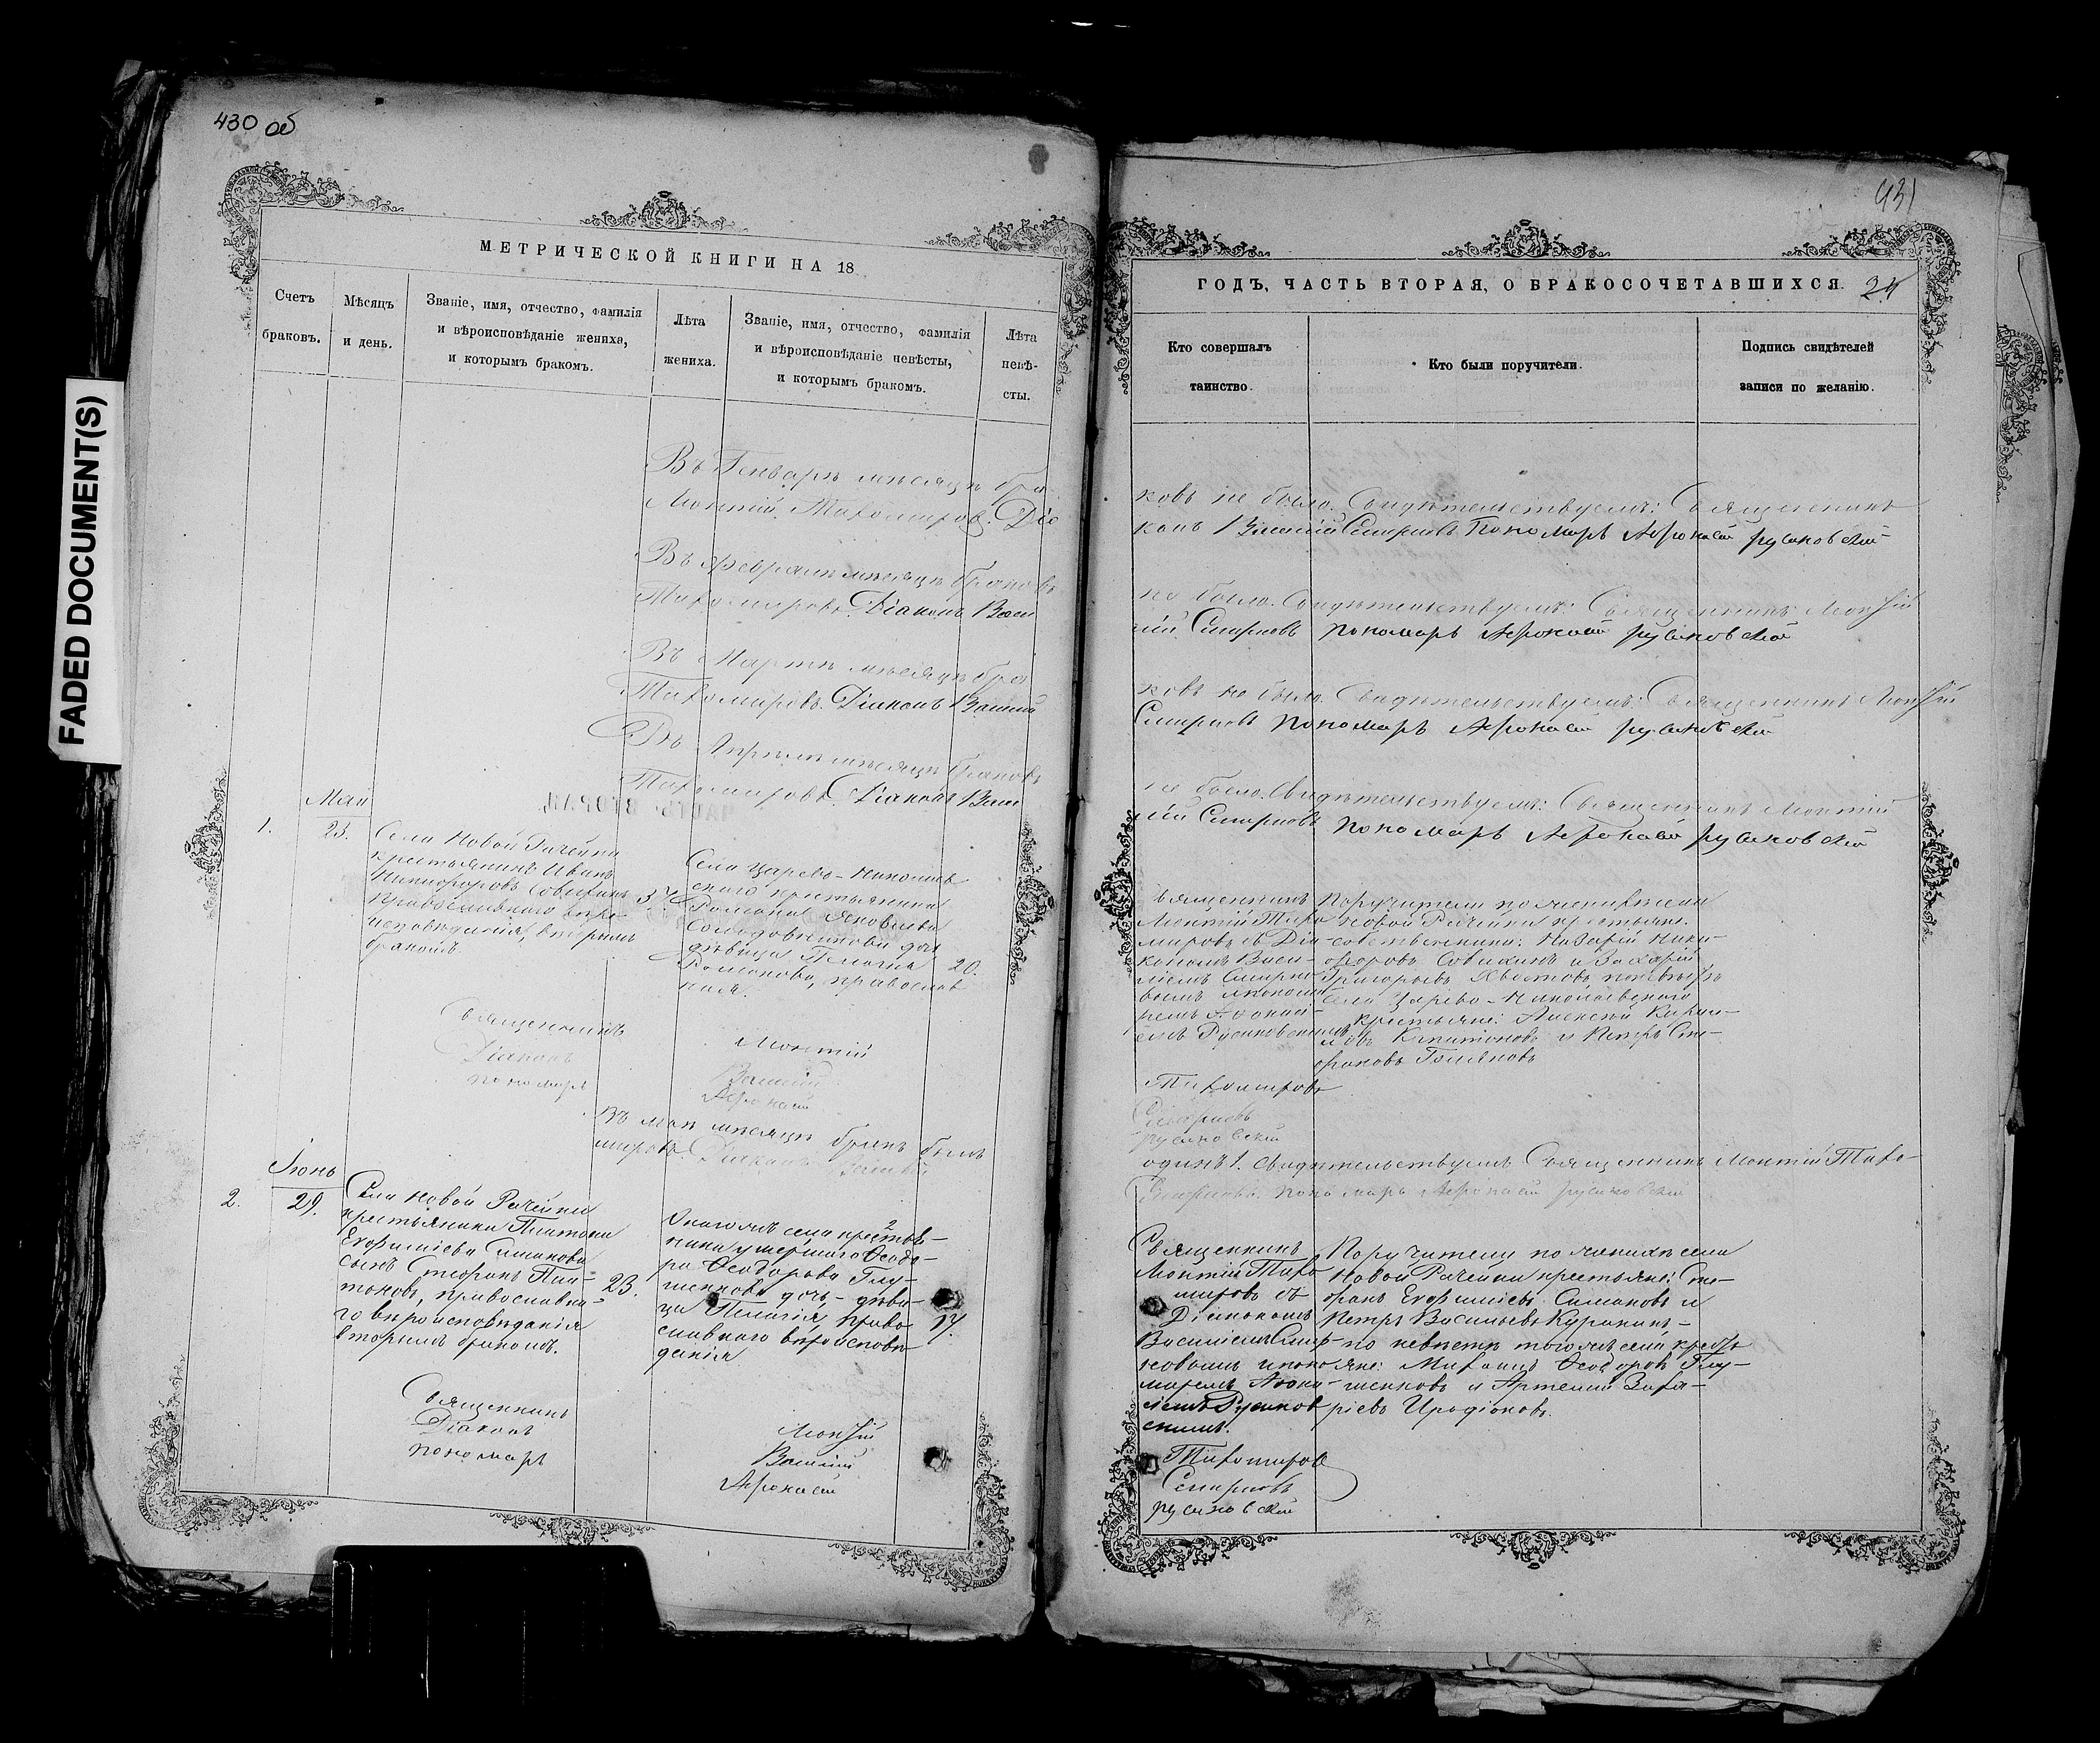 430 об
МЕТРИЧЕСКОЙ КНИГИ НА 18
Счетъ браковъ.
Мѣсяцъ и день.
Званіе, имя, отчество, фамилія
и вѣроисповѣданіе жениха,
и которымъ бракомъ.
Лѣта
жениха.
Званіе, имя, отчество, фамилія
и вѣроисповѣданіе невѣсты,
и которымъ бракомъ.
Лѣта
невѣ-
сты.
Въ Генварѣ мѣсяцѣ бра
Монтій Тихомировъ. Діа
Въ Февралѣ мѣсяцѣ браковъ
Тихомировъ. Діаконъ Васи
Въ Мартѣ мѣсяцѣ бра
Тихомировъ. Діаконъ Василій
Въ Апрѣлѣ мѣсяцѣ браковъ
Тихомировъ. Діаконъ Васи
Маи
1.
23.
Села Новой Рачейки
крестьянинъ Иванъ
Никифоровъ
православнаго вѣро-
исповѣданія, вторымъ
бракомъ.
Села Царево-Николаев
скаго крестьянина
Романа Яковлева
Солодовникова дочь
дѣвица Пелагія
Романова, православ
ная.
20.
Священникъ Монтій
Діаконъ Василій
пономарь Афонасій
Въ маѣ мѣсяцѣ бракъ былъ
мировъ. Діаконъ Василій
Іюнь
2.
29.
Села Новой Рачейки
крестьянина Платона
Евфиміева Симакова
сынъ Стефанъ Пла-
тоновъ, православна-
го вѣроисповѣданія
вторымъ бракомъ.
23.
Онагожъ села крестья-
нина умершаго Ѳеодо-
ра Ѳеодорова Глу-
шенкова дочь-дѣви-
ца Пелагія, право
славнаго вѣроисповѣ
данія
17.
Священникъ Монтій
Діаконъ Василій
пономарь Афонасій
431
ГОДЪ, ЧАСТЬ ВТОРАЯ, О БРАКОСОЧЕТАВШИХСЯ.
24
Кто совершалъ
таинство.
Кто были поручители.
Подпись свидѣтелей
записи по желанію.
ковъ не было. Свидѣтельствуемъ: Священникъ
конъ Василій Смирновъ Пономарь Афонасій русановскій
не было. Свидѣтельствуемъ: Священникъ Монтій
лій Смирновъ пономарь Афонасій русановскій
ковъ не было. Свидѣтельствуемъ: Священникъ Монтій
Смирновъ пономарь Афонасій русановскій
не было. Свидѣтельствуемъ: Священникъ Монтій
лій Смирновъ пономарь Афонасій русановскій
Священникъ
Монтій Тихо
мировъ съ Діа-
кономъ Васи-
ліемъ Смирно
вымъ и понома
ремъ Афонасі-
емъ Русановскимъ
Поручители по женихѣ села
Новой Рачейки крестьяне
собственники: Назарій Ники-
форовъ и Захарій
Григорьевъ Хвостовъ, по невѣстѣ
села Царево-Николаевскаго
крестьяне: Алексѣй Кирил-
ловъ Капитоновъ и Петръ Сте-
фановъ
Тихомировъ
Смирновъ
русановскій
одинъ 1. Свидѣтельствуемъ Священникъ Монтій Тихо-
Смирновъ. пономарь Афонасій русановскій
Священникъ
Монтій Тихо
мировъ съ
Діакономъ
Василіемъ Смир-
новымъ и поно
маремъ Афона-
сіемъ Русанов
скимъ.
Поручители по женихѣ села
Новой Рачейки крестьяне: Сте-
фанъ Евфиміевъ Симаковъ и
Петръ Васильевъ Куранинъ-
по невѣстѣ тогожъ села крестъ
яне: Михаилъ Ѳеодоровъ Глу-
шенковъ и Артемій Заха-
ріевъ Иродіоновъ.
Тихомировъ
Смирновъ
русановскій
FADED DOCUMENT(S)